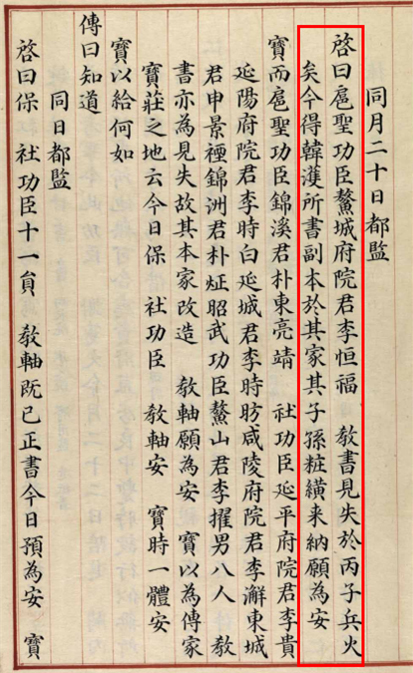 同月二十日都監
啓曰扈聖功臣鰲城府院君李恒福 敎書見失於丙子兵火
矣今得韓濩所書副本於其家其子孫粧䌙来納願為安
寶而扈聖功臣錦溪君朴東亮靖 社功臣延平府院君李貴
延陽府院君李時白延城君李時昉咸陵府院君李澥東城
君申景禋錦洲君朴炡昭武功臣鰲山君李擢男八人 敎
書亦為見失故其本家改造 敎軸願為安 寶以為傳家
寶莊之地云今日保 社功臣 敎軸安 寶時一體安
寶以給何如
傳曰知道
同日都監
啓曰保 社功臣十一員 敎軸既已正書今日預為安 寶